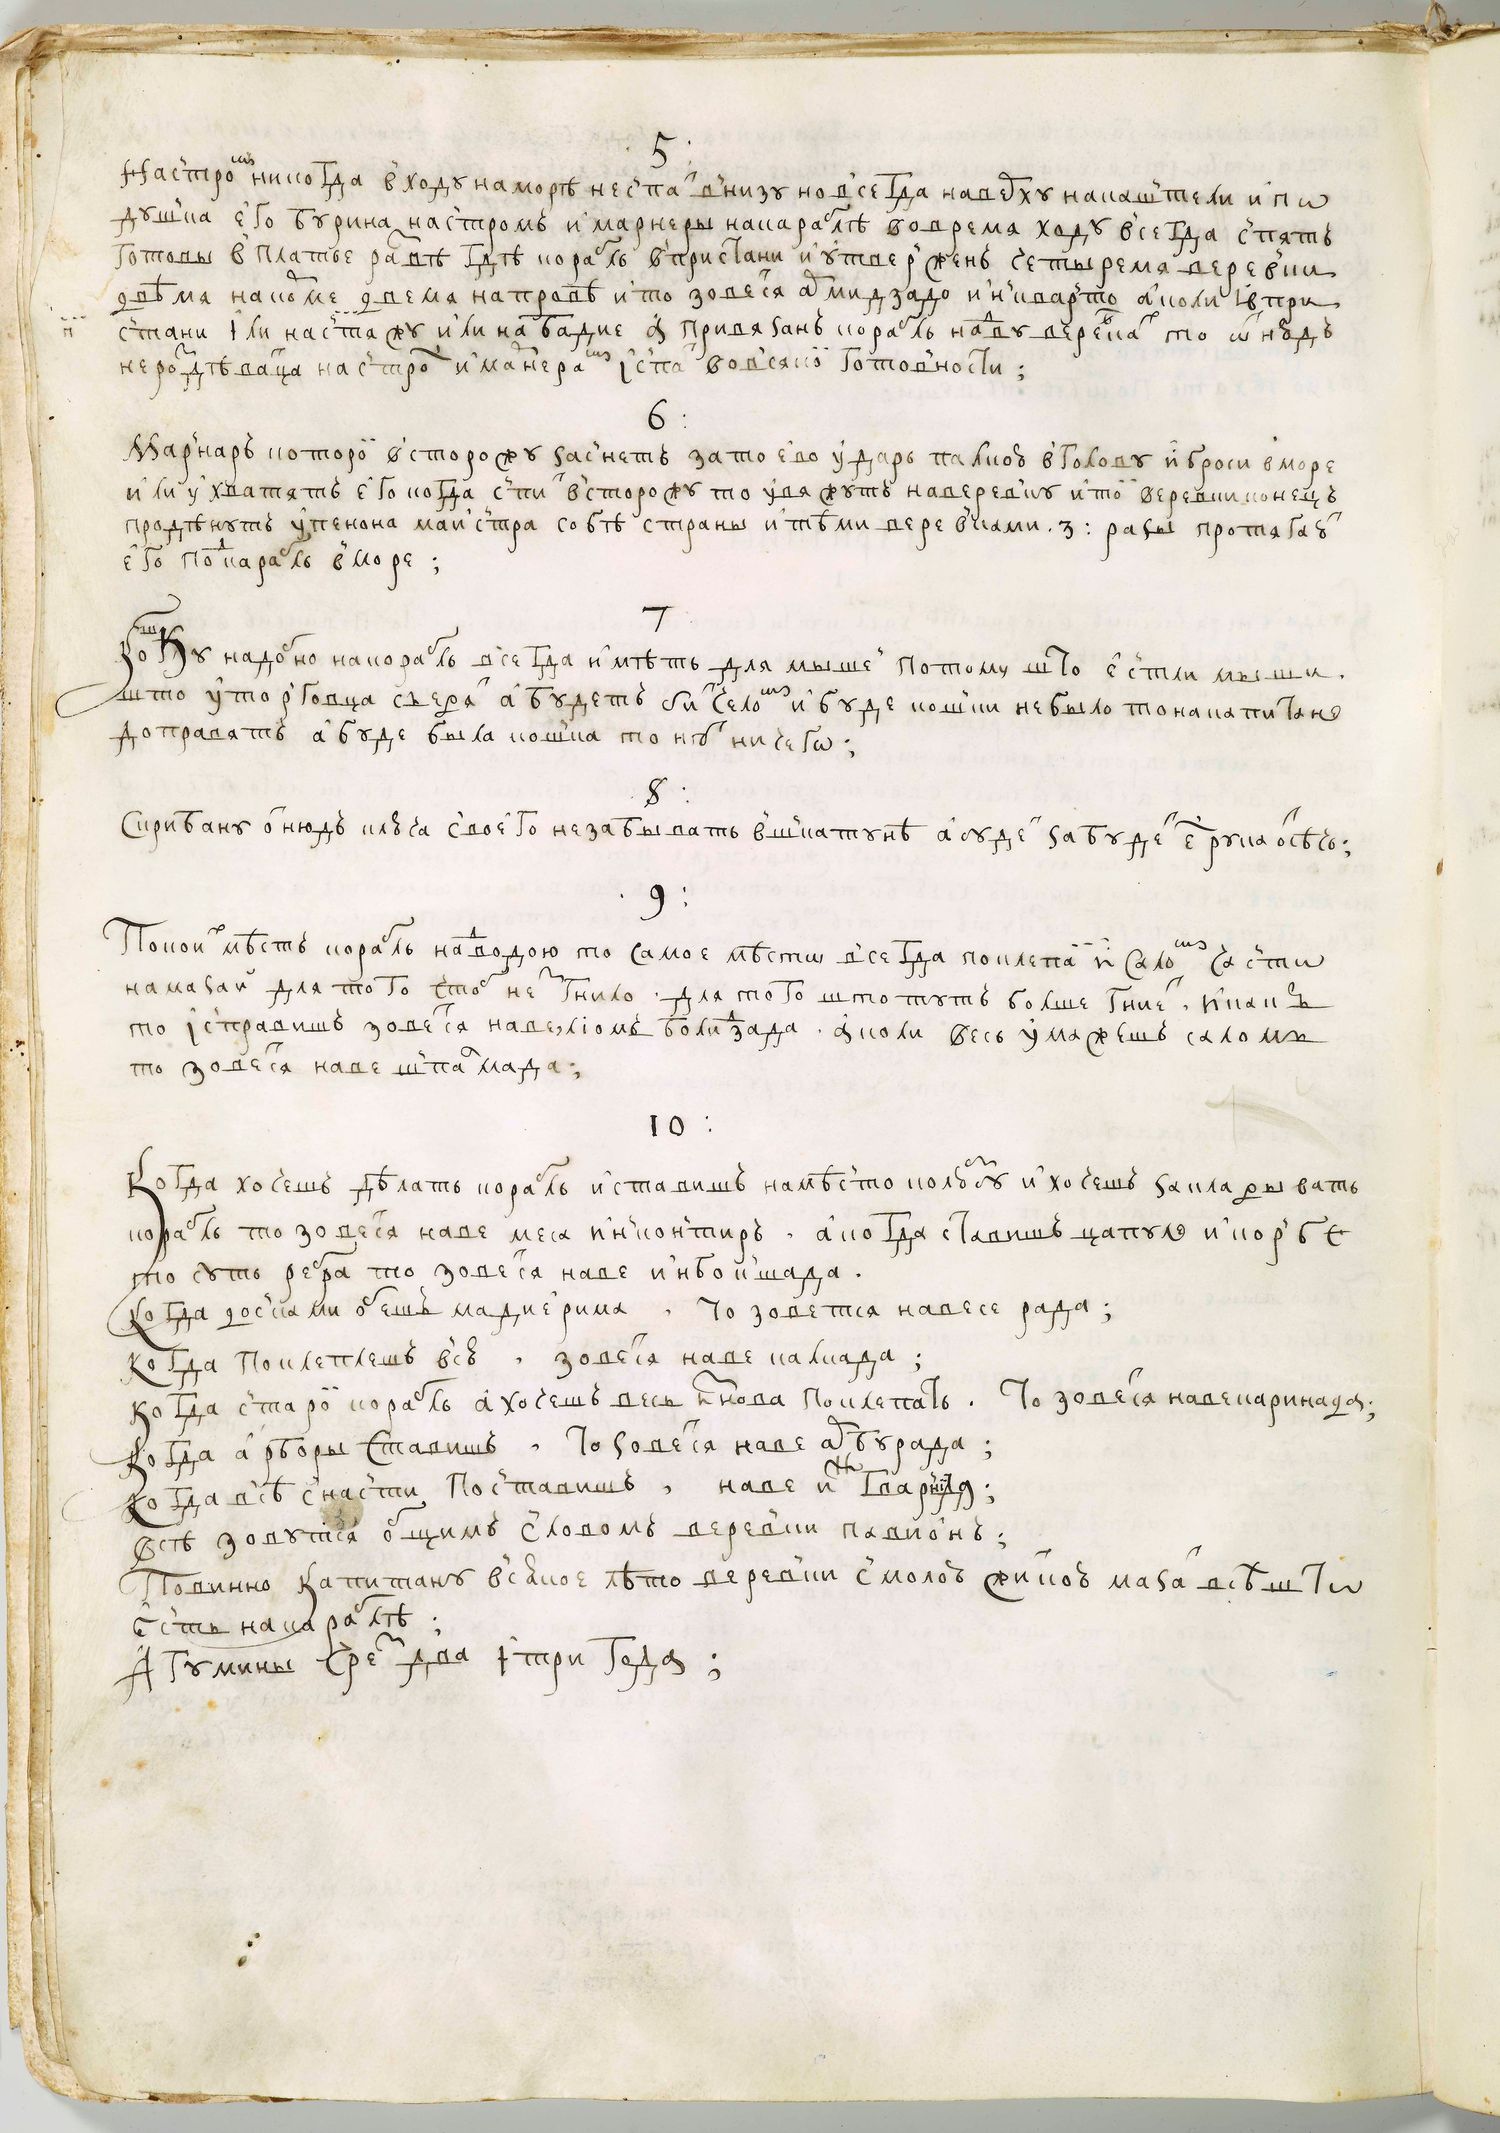 5 :
Настромъ никогда в ходу на морѣ не спат внизу но всегда наверху на каштели и по
душка его бурина, настромъ и марнеры на караблѣ во время ходу всегда спятъ
готовы в платье развѣ гдѣ корабль в пристани и утвержень четырема веревки
двѣмя на коме двемя на провѣ и то зовеся армидзадо инкварто а коли в при
стани или на стажу или на бадие а привязанъ корабль на дву веревках то отнюдъ
не роздѣваца настром и марнерам і спат во всякой готовности ;
6 :
Марнаръ которой в сторожу заснетъ за то ево ударь палкою в голову и броси в море
или ухватятъ его когда спит в сторожу то увяжутъ на веревку и той веревки конецъ
продѣнутъ у пенона маистра со обѣ страны и тѣми веревками . 3 : разы протягаю
его под карабль в море ;
7
Кошку надобно на корабль всегда имѣть для мышей потому што естли мыши
што у торговца съедят а будетъ бит челом и буде кошки не было то на капитане
доправятъ а буде была кошка то нет ничего ;
8 :
Скривану отнюдь ключа своего не забывать в шкатунѣ а буде забудет ему рука отсѣчь ;
9 :
Покои мѣстъ корабль над водою то самое мѣсто всегда поклепай и салом часто
намазай для того чтоб не гнило . для того што тутъ болше гниет . и какъ
то исправишъ зовеся наве,ліомъ болидзада . а коли весь умажешъ саломъ
то зовеся наве шпалмада ;
10 :
Когда хочешъ дѣлать корабль и ставишъ на мѣсто колюбу и хочешъ закладывать
корабль то зовеся наве меса инконтиръ . а когда ставишъ цапуле и корбе
то суть ребра то зовеся наве инбоишада .
Когда досками обешъ мадиерима , то зовется наве серада ;
Когда поклеплешъ всю , зовеся наве калкада ;
Когда старой корабль а хочешъ весь снова поклепать . то зовеся наве каринада ;
Когда арборы ставишъ , то зовеся наве арбурада ;
Когда всѣ снасти поставишъ , наве ин гварнида ;
Всѣ зовутся общимъ словомъ веревки павионъ ;
Повинно капитану всякое лѣто веревки смолою житкою мазат всѣ што
есть на караблѣ ;
А гумины чрез два и три года ;